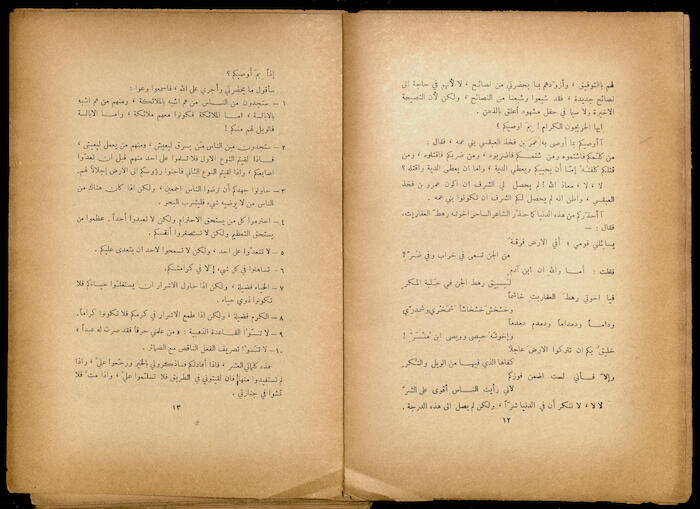 لهم بالتوفيق ، وأزودهم بما يحضرني من نصائح ، لا لأنهم في حاجة الى
نصائح جديدة ، فقد شبعوا وشبعنا من النصائح ، ولكن لأن النصيحة
الاخيرة ولا سيا في حفل مشهود أعلق بالذهن .
ايها الخريجون الكرام ! بمَ اوصيكم ؟
أأوصيكم بما أوصى به عمر بن فخذ العبقسي بني عمه ، فقال :
من كلمكم فاشتموه ومن شتمكم فاضربوه ، ومن ضربكم فاقتلوه ، ومن
قتلكم كلفته إما أن يحييكم ويعطي الدية ، واما ان يعطي الدية واقتله ؟
لا ، لا ، معاذ الله ! لم يحصل لي الشرف ان اكون عمرو بن فخذ
العبقسي ، واظن انه لم يحصل لكم الشرف ان تكونوا بني عمه .
أأحذركم من هذه الدنيا كما حذر الشاعر الساخر اخوته رهط العفاريت،
فقال : —
يسائلني قومي ؛ أفي الارض فرقة
من الجن تسعى في خراب وفي ضر ؟
فقلت : أما والله ان ابن آدم
ليسبق رهط الجن في حلبة المكر
فيا اخوتي رهط العفاريت خاشما
وداهما ودمداما ودمدم دهدعا
وإخوته حيصى وبيصى ابن
خليق بكم ان تتركوا الارض عاجلا
كفاها الذي فيها من الويل والنكر
وإلا فاني لست اضمن فوزكم
لأني رأيت الناس أقوى على الشر
لا لا، لا ننكر أن في الدنيا شراً ، ولكن لم يصل الى هذه الدرجة .
١٢
إذاً بمَ أوصيكم ؟
سأقول ما يحضرني وأجري على الله ، فاسمعوا وعوا :
١ – ستجدون من الناس من هم اشبه بالملائكة ، ومنهم من هم اشبه
بالابالسة ، اما الملائكة فكونوا معهم ملائكة ، واما الابالسة
فالويل لهم منكم !
٢ – ستجدون من الناس من يسرق ليعيش ، ومنهم من يعمل ليعيش ،
فاذا لقيتم النوع الاول فلا تسلموا على احد منهم قبل ان تعدوا
اصابعكم ، واذا لقيتم النوع الثاني فاحنوا رؤوسكم الى الارض إجلالاً لهم.
٣ – حاولوا جهدكم أن ترضوا الناس اجمعين ، ولكن اذا كان هناك من
الناس من لا يرضيه شيء فليشرب البحر .
٤ – احترموا كل من يستحق الاحترام ولكن لا تعبدوا أحداً. عظموا من
يستحق التعظيم ولكن لا تستصغروا أنفسكم .
٥ – لا تتعدوا على احد ، ولكن لا تسمحوا لاحد ان يتعدى عليكم .
٦ – تساهلوا في كل شيء إلا في كرامتكم .
٧ – الحياء فضيلة ، ولكن اذا حاول الاشرار ان يستغلوا حياءكم فلا
تكونوا ذوي حياء .
٨ – الكرم فضيلة ، ولكن اذا طمع الاشرار في كرمكم فلا تكونوا كراماً.
٩ – لا تنسوا القاعدة الذهبية : « من علمني حرفاً فقد صرت له عبداً ،
١٠– لا تنسوا تصريف الفعل الناقص مع الضمائر .
هذه كلماتي العشر ، فاذا أفادتكم فاذكروني بالخير ورحموا علي ، واذا
لم تستفيدوا منها فان لقيتموني في الطريق فلا تسلموا علي ، واذا مت فلا
تمشوا في جنازتي .
١٣